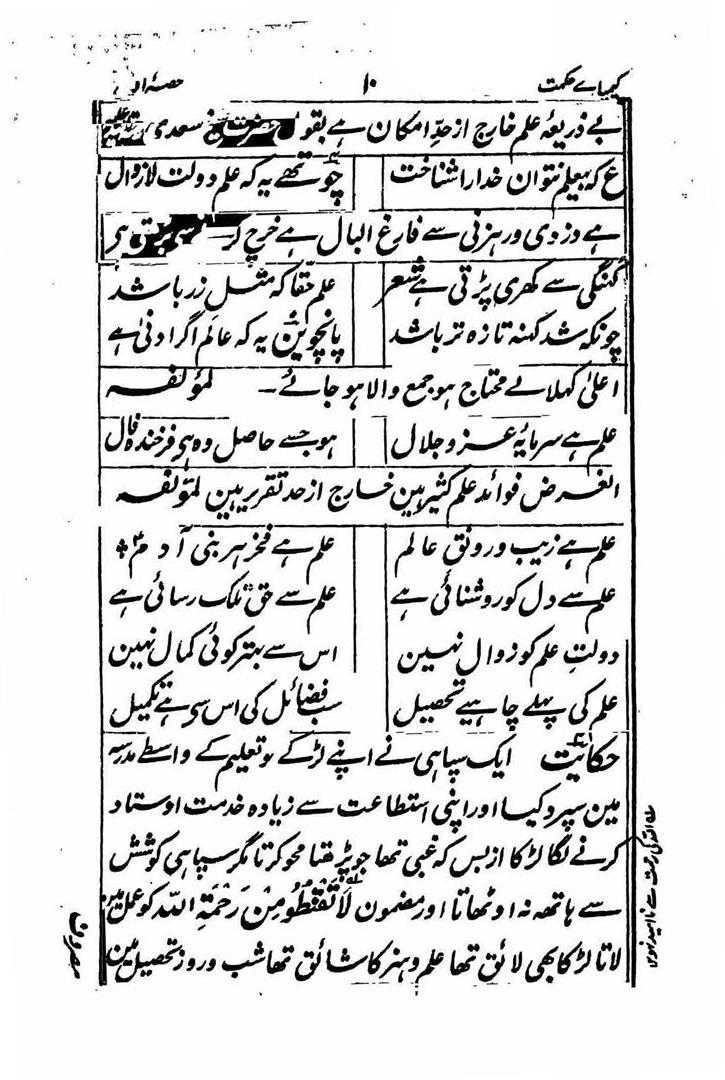 کیمیاے حکمت ۱۰ حصۂ او
بے ذریعۂ علم خارج از حدِ امکان ہے بقول حضرت شیخ سعدی
ع کہ بیعلم نتوان خدا را شناخت چوتھے یہ کہ علم دولت لازوال
ہے دزدی ورہزنی سے فارغ البال ہے خرچ کر
کہنگی سے کھری پڑتی ہے شعر علم حقا کہ مثل زر باشد
چونکہ شد کہنہ تازہ تر باشد پانچوین یہ کہ عالم اگر ادنی ہے
اعلیٰ کہلائے محتاج ہو جمع والا ہو جائے۔ لمؤلفہ
علم ہے سرمایۂ عز و جلال ہو جسے حاصل وہ ہی فرخندہ فال
الغرض فوائد علم کثیر ہین خارج از حد تقریر ہین لمؤلفہ
علم ہے زیب و رونق عالم علم ہے فخر ہر بنی آدم
علم سے دل کو روشنائی ہے علم سے حق تلک رسائی ہے
دولتِ علم کو زوال نہین اس سے بہتر کوئی کمال نہین
علم کی پہلے چاہیے تحصیل سب فضائل کی اس سی ہے تکمیل
حکایت ایک سپاہی نے اپنے لڑکے کو تعلیم کے واسطے مدرسہ
مین سپرد کیا اور اپنی استطاعت سے زیادہ خدمت اوستاد
کرنے لگا لڑکا ازبس کہ غبی تھا جو پڑھتا محو کرتا مگر سپاہی کوشش
سے ہاتھ نہ اوٹھاتا اور مضمون لَا تَقْنَطُو مِنْ رَحْمَةِ اللّٰه کو عمل مین
لاتا لڑکا بھی لائق تھا علم و ہنر کا شائق تھا شب و روز تحصیل مین
مصروف
اللہ کی رحمت سے نا امید نہو